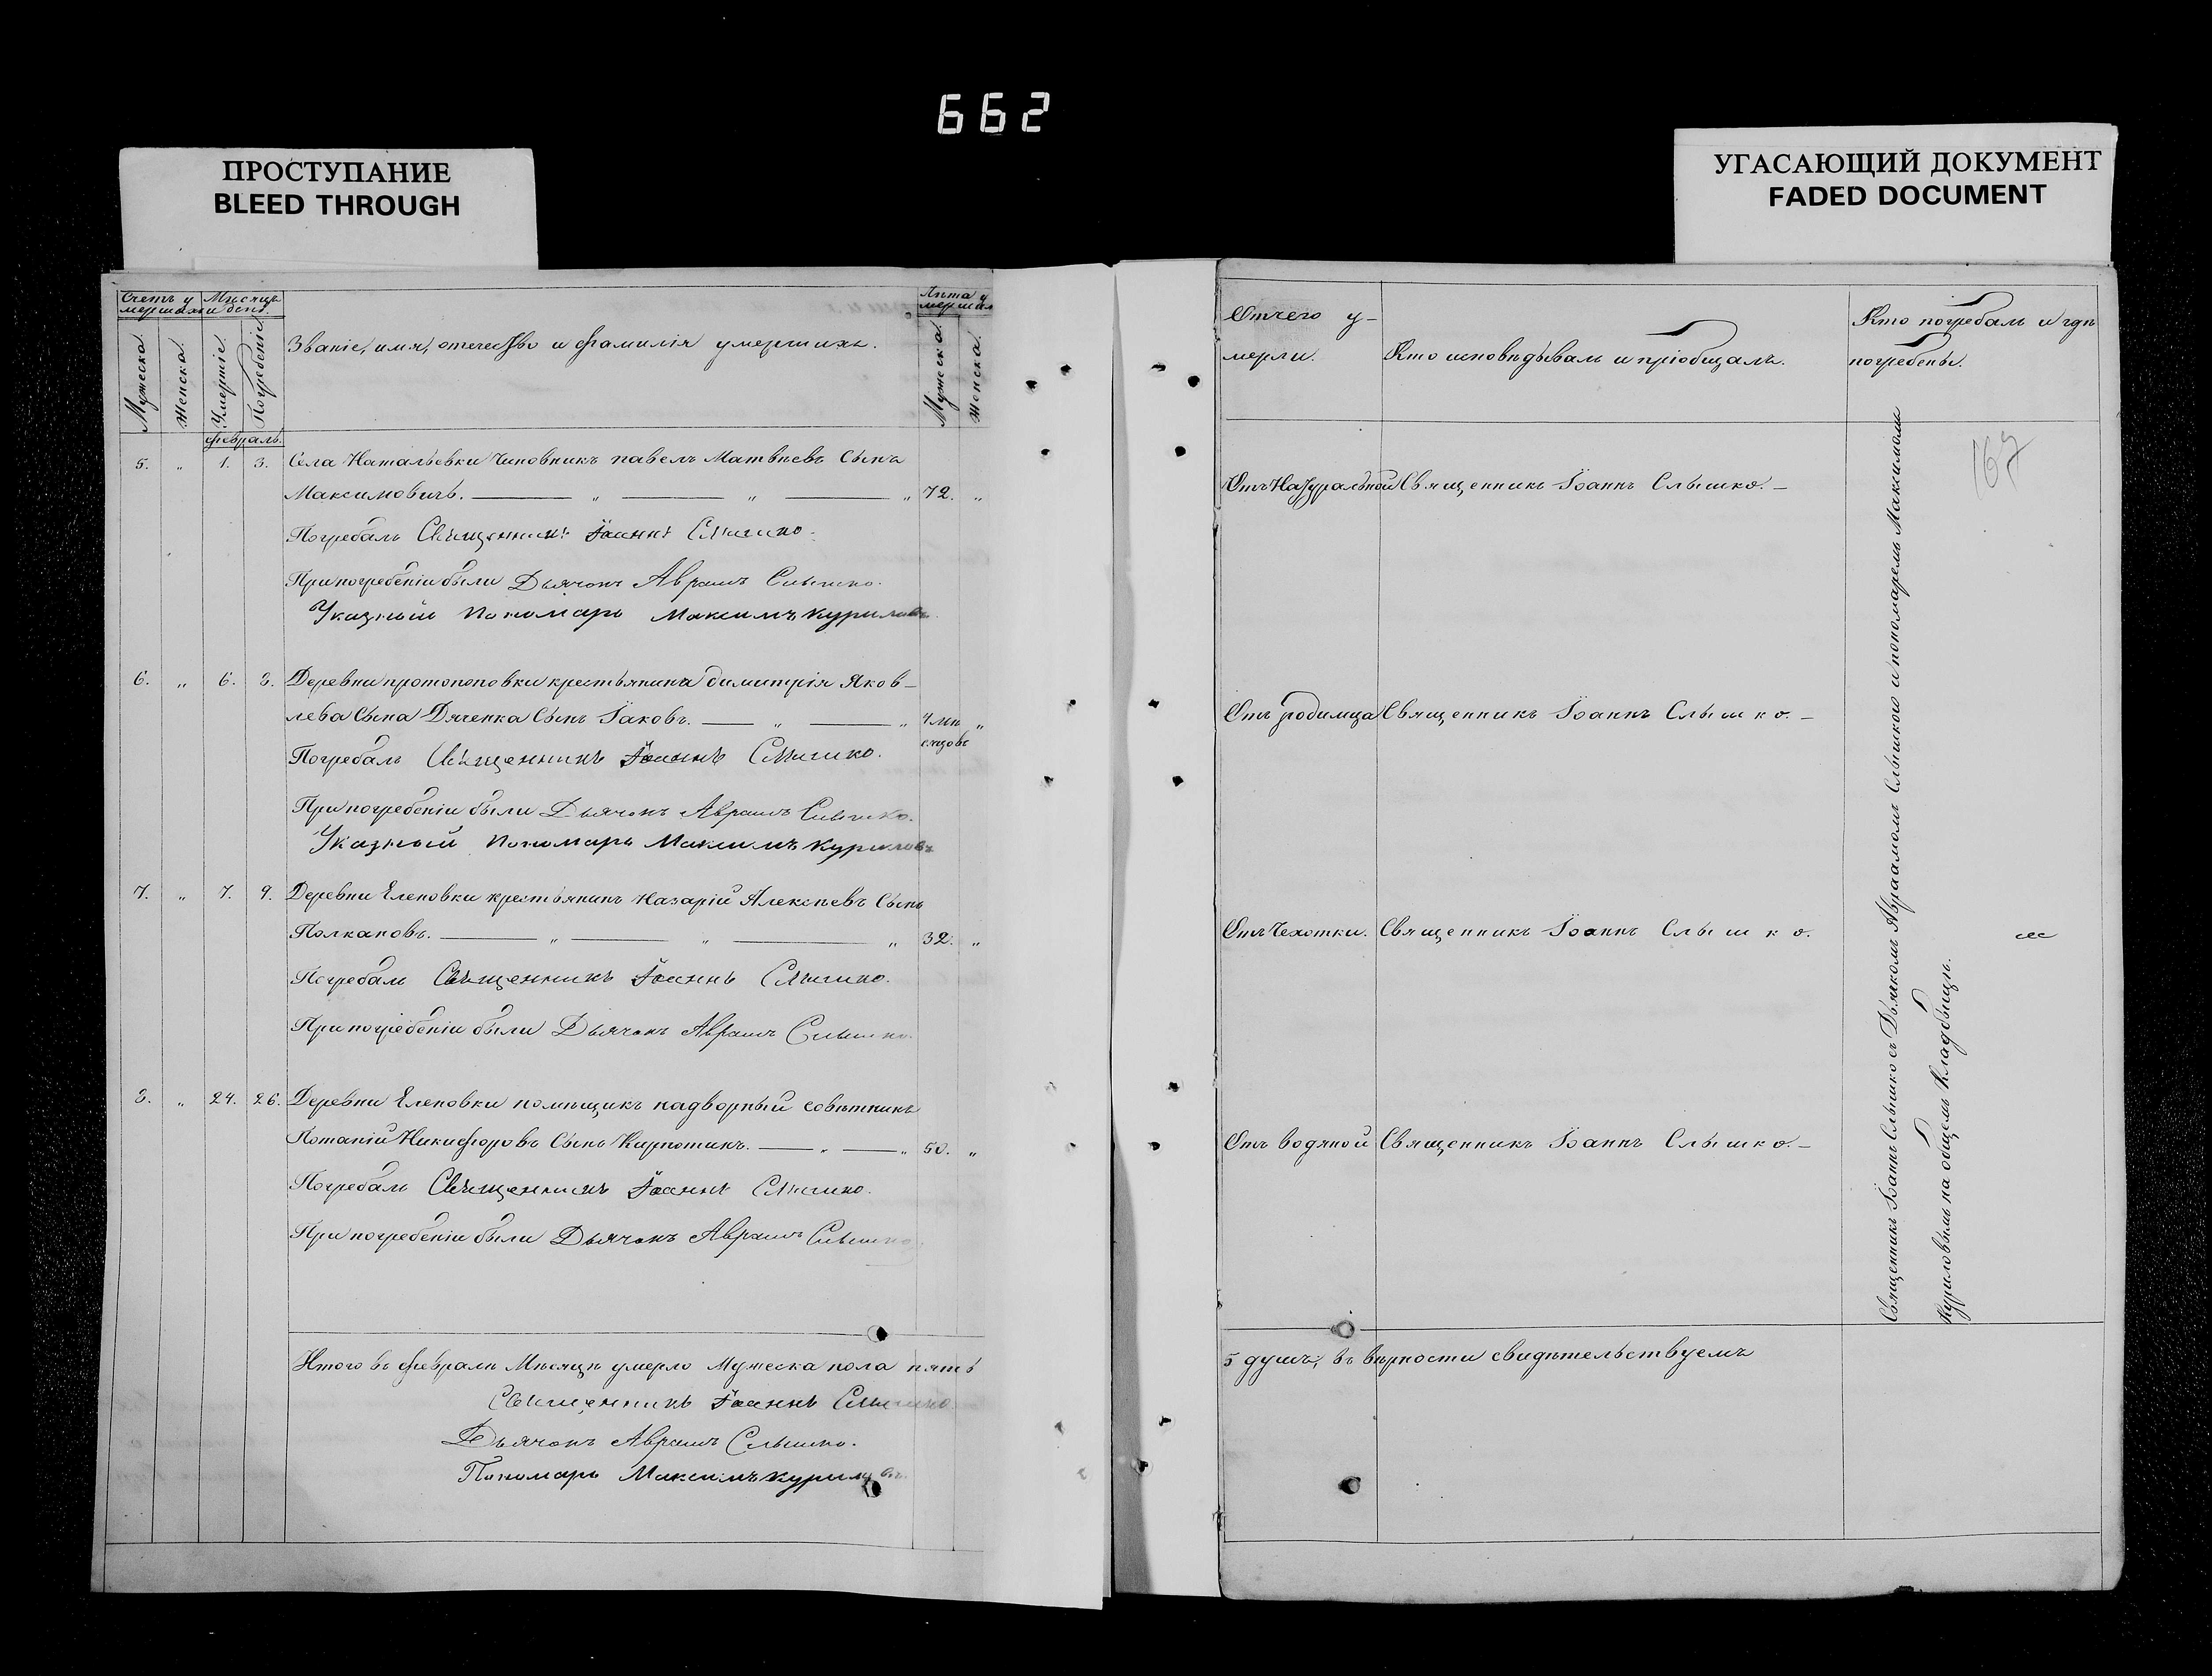 662
ПРОСТУПАНИЕ
BLEED THROUGH
УГАСАЮЩИЙ ДОКУМЕНТ
FADED DOCUMENT
Счетъ у
мершихъ
Мѣсяцъ
и день.
Лѣта у
мерших
Мужеска
Женска.
Умертіе.
Погребеніе.
Званіе, имя, отечество и фамилія умершихъ.
Мужеска.
Женска.
февраль.
5. „ 1. 3. Села Натальевки Чиновникъ павелъ Матвѣевъ Сынъ
Максимовичъ. — „ — „ — „ 72. „
Погребалъ Священникъ Іоаннъ Слышко.
При погребеніи были Дьячокъ Авраамъ Слышко.
Указный Пономарь Максимъ Куриловъ
6. „ 6. 8. Деревни протопоповки крестьянина димитрія Яков-
лева Сына Дяченка Сынъ Іаковъ. — „ — „ 4 мѣ „
сяцовъ
Погребалъ Священникъ Іоаннъ Слышко.
При погребеніи были Дьячокъ Авраамъ Слышко.
Указный Пономарь Максимъ Куриловъ
7. „ 7. 9. Деревни Еленовки крестьянинъ Назарій Алексѣевъ Сынъ
Полкановъ. — „ — „ — „ 32. „
Погребалъ Священникъ Іоаннъ Слышко.
При погребеніи были Дьячокъ Авраамъ Слышко.
8. „ 24. 26. Деревни Еленовки помѣщикъ надворный совѣтникъ
Потапій Никифоровъ Сынъ Кирпотинъ. — „ — „ 50. „
Погребалъ Священникъ Іоаннъ Слышко.
При погребеніи были Дьячокъ Авраамъ Слышко
Итого въ февралѣ Мѣсяцѣ умерло Мужеска пола пять
Священникъ Іоаннъ Слышко
Дьячокъ Авраамъ Слышко.
Пономарь Максимъ Куриловъ.
Отчего у-
мерли.
Кто исповѣдывалъ и пріобщалъ.
Кто погребалъ и гдѣ
погребены.
167
Отъ Натуральной Священникъ Іоаннъ Слышко. –
Отъ родимца Священникъ Іоаннъ Слышко. –
Отъ Чехотки. Священникъ Іоаннъ Слышко.
Отъ водяной Священникъ Іоаннъ Слышко. –
Священникъ Іоаннъ Слышко съ Дьячкомъ Авраамомъ Слышкою и пономаремъ Максимомъ
Куриловымъ на общемъ Кладбищѣ.
5 душъ, въ вѣрности свидѣтельствуемъ